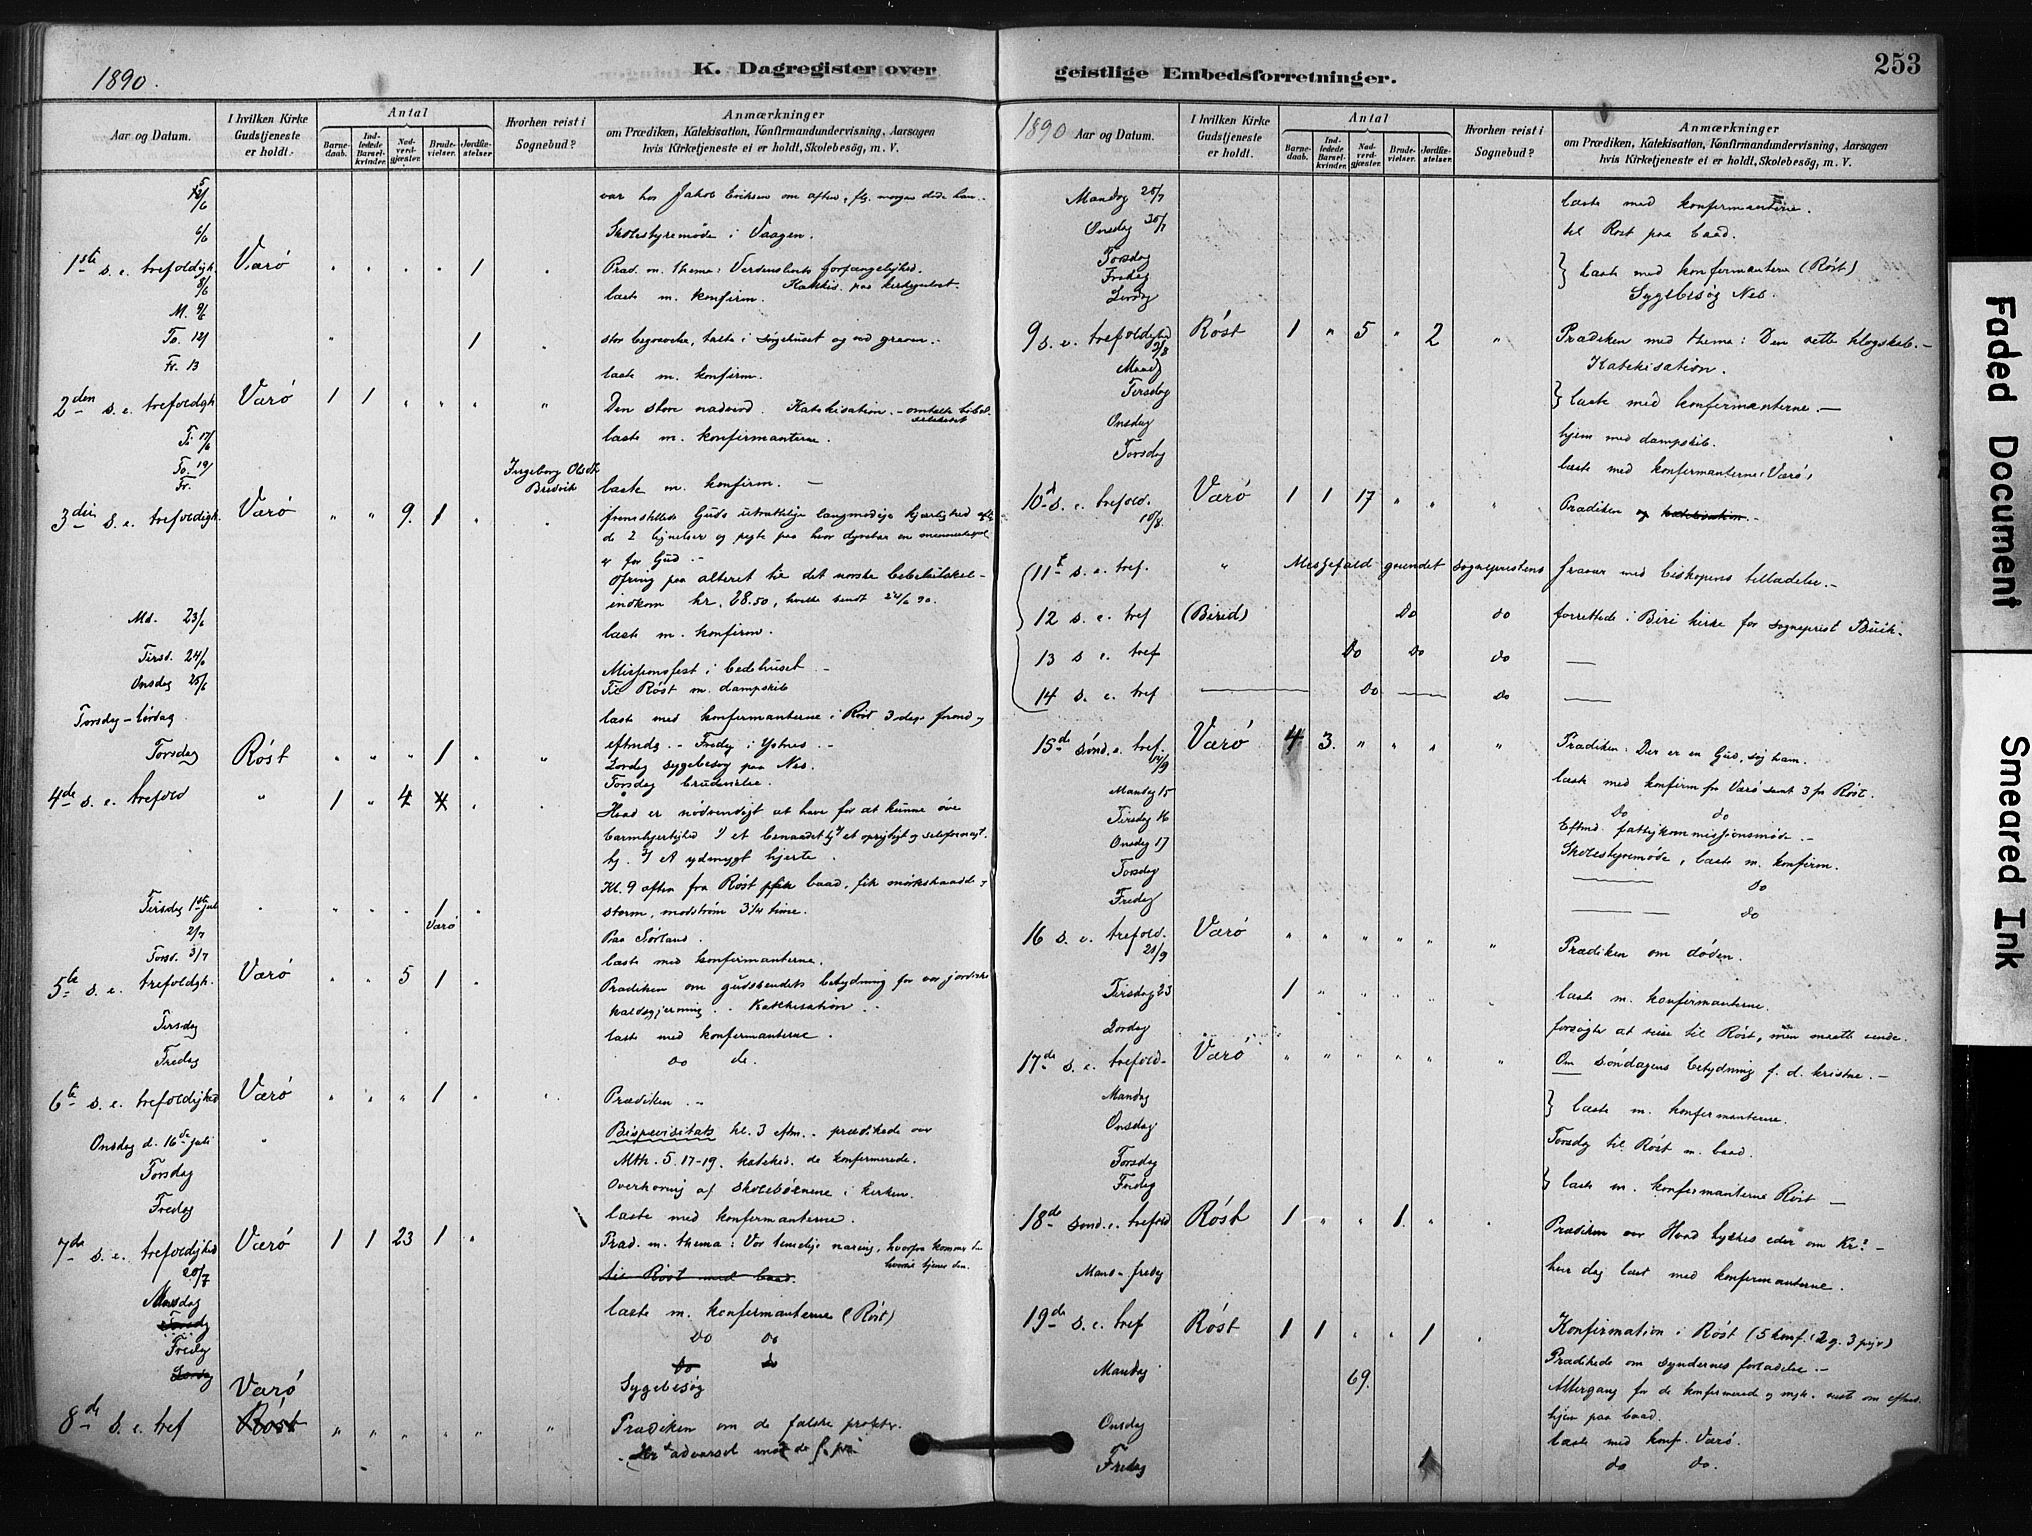 1890.
K. Dagregister over
Aar og Datum.
I hvilken Kirke Gudstjeneste er holdt.
Antal
Barnedaab.
Indledede Barselkvinder.
Nadverdgjæster.
Brudevielser.
Jordfæstelser
Hvorhen reist i Sognebud?
Anmærkninger
om Prædiken, Katekisation, Konfirmandundervisning, Aarsagen
hvis Kirketjeneste ei er holdt, Skolebesøg, m. V.
var hos Jakob Eriksen om aften, flg. morgen døde han.
6/6 Skolestyremøde i Vaagen.
1ste s. e. trefoldigh. 8/6 Værø " " " " 1 " Præd. m. thema: Verdenslivets forfængelighed.
Katekis. paa kirkegulvet.
M. 9/6 læste m. konfirm.
To. 12/ " 1 " stor begravelse, talte i sørgehuset og ved graven.
Fr. 13 læste m. konfirm.
2den s. e. trefoldgh. Værø 1 1 " " " " Den store nadverd. Katekisation. - omtalte bibel
Ti. 17/6 læste m. konfirmanterne.
To. 19/ Ingeborg Olsdtr
Fr. Bredvik læste m. konfirm. —
3die s. e. trefoldigh. Værø " " 9. 1 " " fremstillede Guds langmodige kjærlighed
de 2 lignelser og pegte paa hvor dyrebar en menneskesjæl
er for Gud. -
Ofring paa alteret til det norske bibelselskab -
indkom kr. 28.50, hvilke sendt 24/6 90.
Md. 23/6 læste m. konfirm.
Tirsd. 24/6 Missionsfest i bedehuset -
Onsdag 25/6 Til Røst m. dampskib
Torsdag - Lørdag læste med konfermanterne i Røst 3 dage formd og
eftmdg. - Fredag i Ystnes. -
Torsdag Røst " " " 1 " " Lørdag sygebesøg paa Nes.
Torsdag brudevielse.
4de s. e. trefold " 1 " 4 " " Hvad er nødvendigt at have for at kunne øve
barmhjertighed 1/ et benaadet hj. 2/ et oprigtigt og selvfornegt.
hj. 3/ et ydmygt hjerte.
Kl. 9 aften fra Røst baad, fik mørkskodde og
Tirsdag 1ste juli " " " " 1 " storm, modstrøm 3 1/4 time.
2/7 Værø Paa Sørland.
Torsd. 3/7 læste med konfermanterne.
5te s. e. trefoldgh. Værø " " 5 1 " Prædiken om gudsordets betydning for vor jordiske
kaldsgjerning. Katekisation.
Tirsdag læste med konfermanterne.
Fredag do do.
6te s. e. trefoldighed Værø " " " 1 " Prædiken. -
Onsdag d. 16de juli " Bispevisitats kl. 3 eftm. - prædikede over
Torsdag Mth. 5. 17-19. kateked. de konfermerede.
Overhøring af skolebørnene i kirken.
Fredag læste med konfermanterne.
7de s. e. trefoldighed 20/7 Værø 1 1 23 1 " Præd. m. thema: Vor timelige næring, hvorfra kommer den
hvortil tjener den.
til Røst med baad.
Mandag læste m. konfermanterne (Røst)
Torsdag
Fredag do do
Lørdag do do
Sygebesøg
8de s. e. tref Værø Røst " " " " " " Prædiken om de falske profeter.
geistlige Embedsforretninger.
253
1890 Aar og Datum.
I hvilken Kirke Gudstjeneste er holdt.
Antal
Barnedaab.
Indledede Barselkvinder.
Nadverdgjæster.
Brudevielser.
Jordfæstelser.
Hvorhen reist i Sognebud?
Anmærkninger
om Prædiken, Katekisation, Konfirmandundervisning, Aarsagen
hvis Kirketjeneste ei er holdt, Skolebesøg, m. V.
Mandag 28/7 læste med konfermanterne.
Onsdag 30/7 til Røst paa baad.
Torsdag
Fredag } læste med konfermanterne (Røst)
Lørdag Sygebesøg Nes.
9 s. e. trefoldighed 3/8 Røst 1 " 5 " 2 " Prædiken med thema: Den rette klogskab. -
Katekisation.
Mandg
Tirsdag } læste med konfermanterne. —
Onsdag hjem med dampskib.
Torsdag læste med konfermanterne: Værø.
10d s. e. trefold. 10/8. Værø 1 1 17 " " " Prædiken og katekisation. -
11te s. e. tref. " Messefald grundet sogneprestens fravær med biskopens tilladelse. -
12 s. e. tref (Birid) Do do forrettede i Biri kirke for sogneprest
13 s e. tref Do Do do —
14 s e. tref — Do — Do —
15de sønd. e. tref. 14/9 Værø 4. 3. " " " " Prædiken: Der er en Gud, søg ham.
Mandag 15 læste med konfirm fr Værø samt 3 fr Røst.
Tirsdag 16 do do
Onsdag 17 Eftmd. fattigkommissjonsmøde. -
Torsdag Skolestyremøde, læste m. konfirm.
Fredag — do
— do
16 s. e. trefold. 21/9 Værø " " " " " " Prædiken om døden.
Tirsdag 23 1 " " " " læste m. konfirmanterne.
Lørdag forsøgte at reise til Røst, men maatte vende.
17de s. e. trefold. Værø " " " " " " Om søndagens betydning f. d. kristne. -
Mandag
Onsdag } læste m. konfermanterne.
Torsdag til Røst m. baad.
Torsdag
Fredag } læste m. konfermanterne Røst —
18de sønd. e. trefold Røst 1 " " 1. " " Prædiken over Hvad tykkes eder om Kr? -
Mand - fredag hver dag læst med konfermanterne.
19de s. e. tref Røst 1 1 " " 1 " Konfirmation i Røst (5 konf. (2 g. 3 piger)
Prædikede om syndernes forladelse. -
Mandag 69. Altergang for de konfermerede og
hjem paa baad.
Onsdag læste med konf. Værø.
Fredag 1 do do.
Faded Document
Smeared Ink